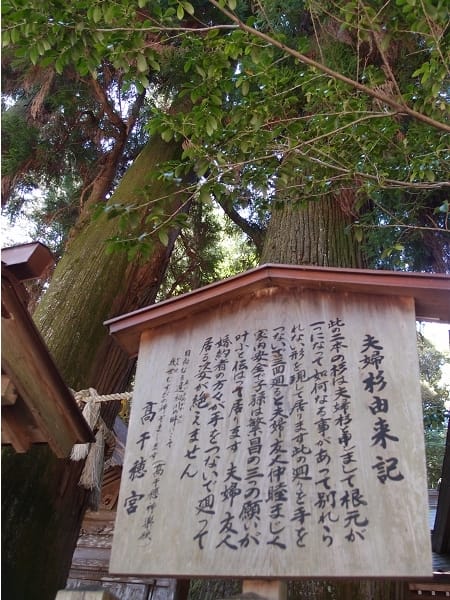 夫婦杉由来記
此の二本の杉は夫婦杉と申しまして根元が
一つになって如何なる事があっても別れら
れない形を現して居ります此の廻りを手を
つないで三回廻ると夫婦友人仲睦まじく
家内安全、子孫は繁昌の三つの願いが
叶うと伝はって居ります夫婦、友人
婚約者の方々が手をつないで廻って
居る姿が絶えません
高千穂宮